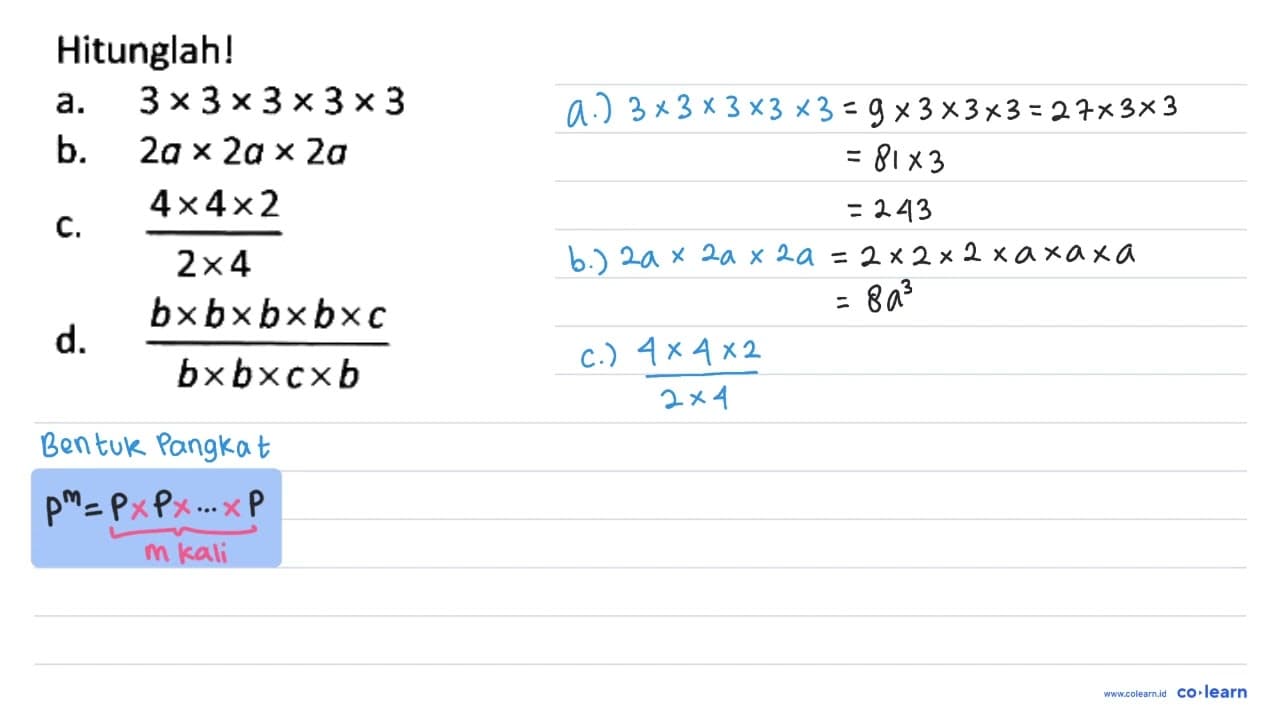 Hitunglah!
a. 3 × 3 × 3 × 3 × 3
b. 2a × 2a × 2a
c. 4 × 4 × 2
2 × 4
d. b × b × b × b × c
b × b × c × b
a.) 3 × 3 × 3 × 3 × 3 = 9 × 3 × 3 × 3 = 27 × 3 × 3
= 81 × 3
= 243
b.) 2a × 2a × 2a = 2 × 2 × 2 × a × a × a
= 8a³
c.) 4 × 4 × 2
2 × 4
Bentuk Pangkat
pᵐ = p × p × ... × p
m kali
www.colearn.id co·learn